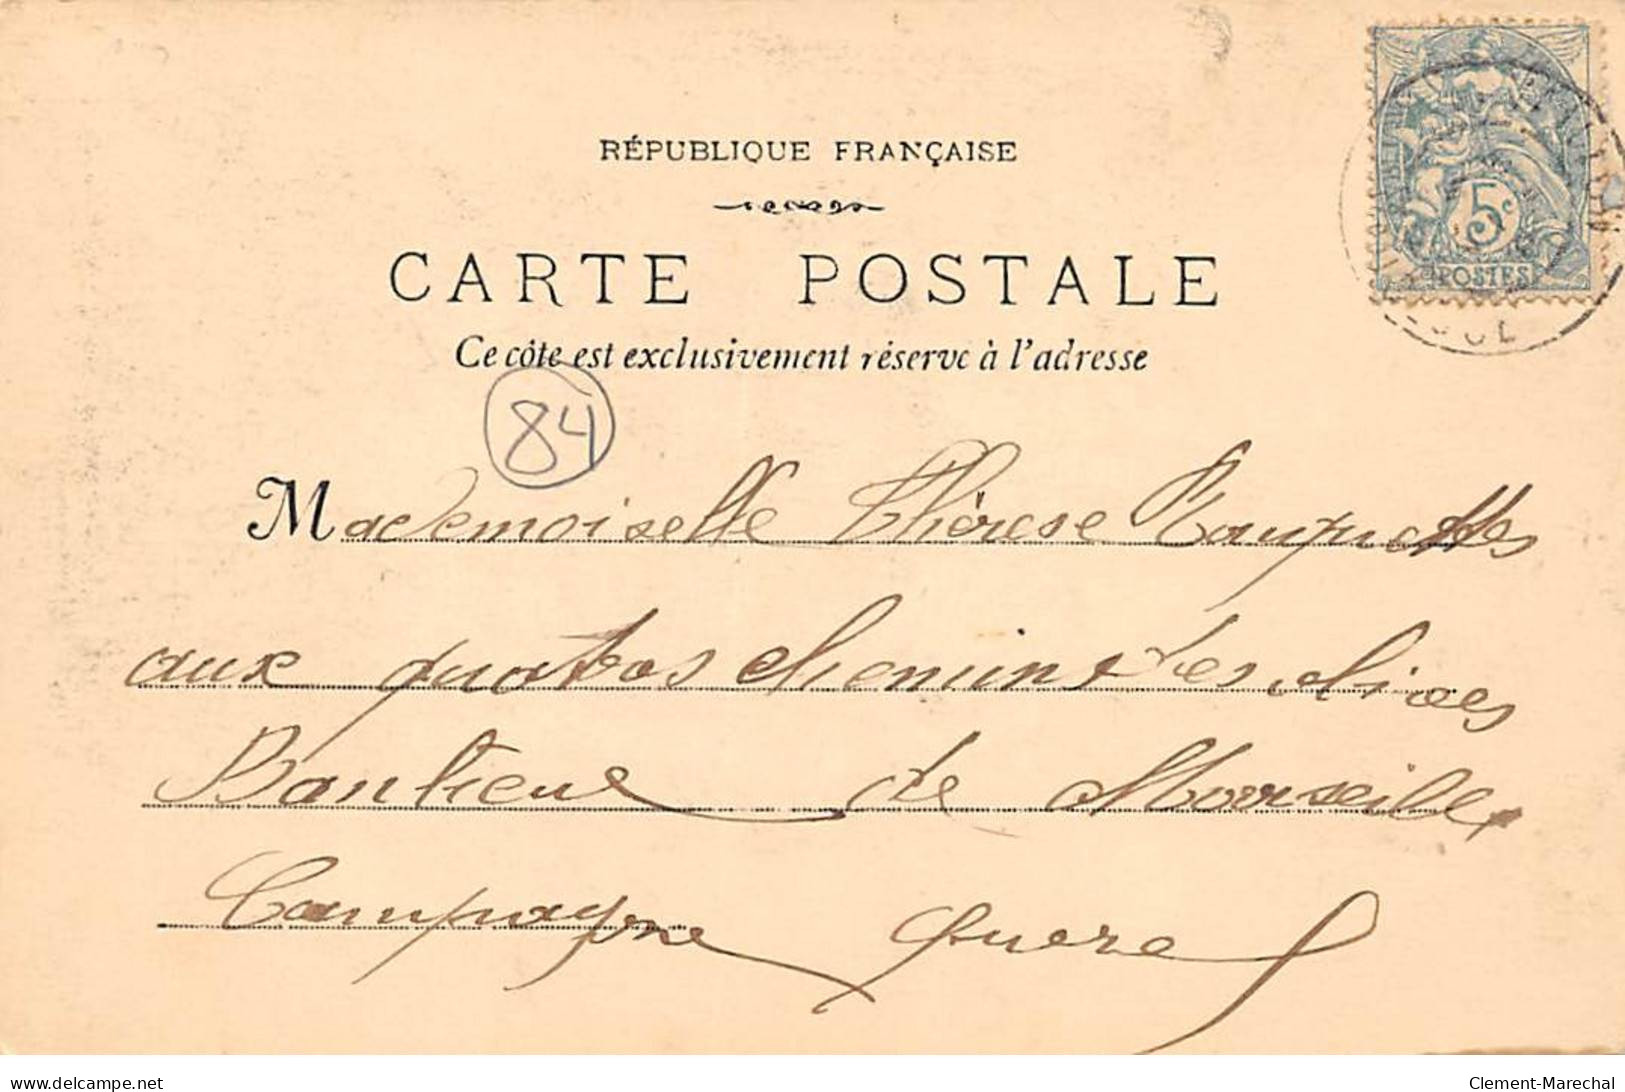 RÉPUBLIQUE FRANÇAISE
5c
POSTES
CARTE POSTALE
Ce côté est exclusivement réservé à l'adresse
84
Mademoiselle Thérèse
aux quatres chemins des
Banlieue de Marseille
Campagne
delcampe.net
Clement-Marechal